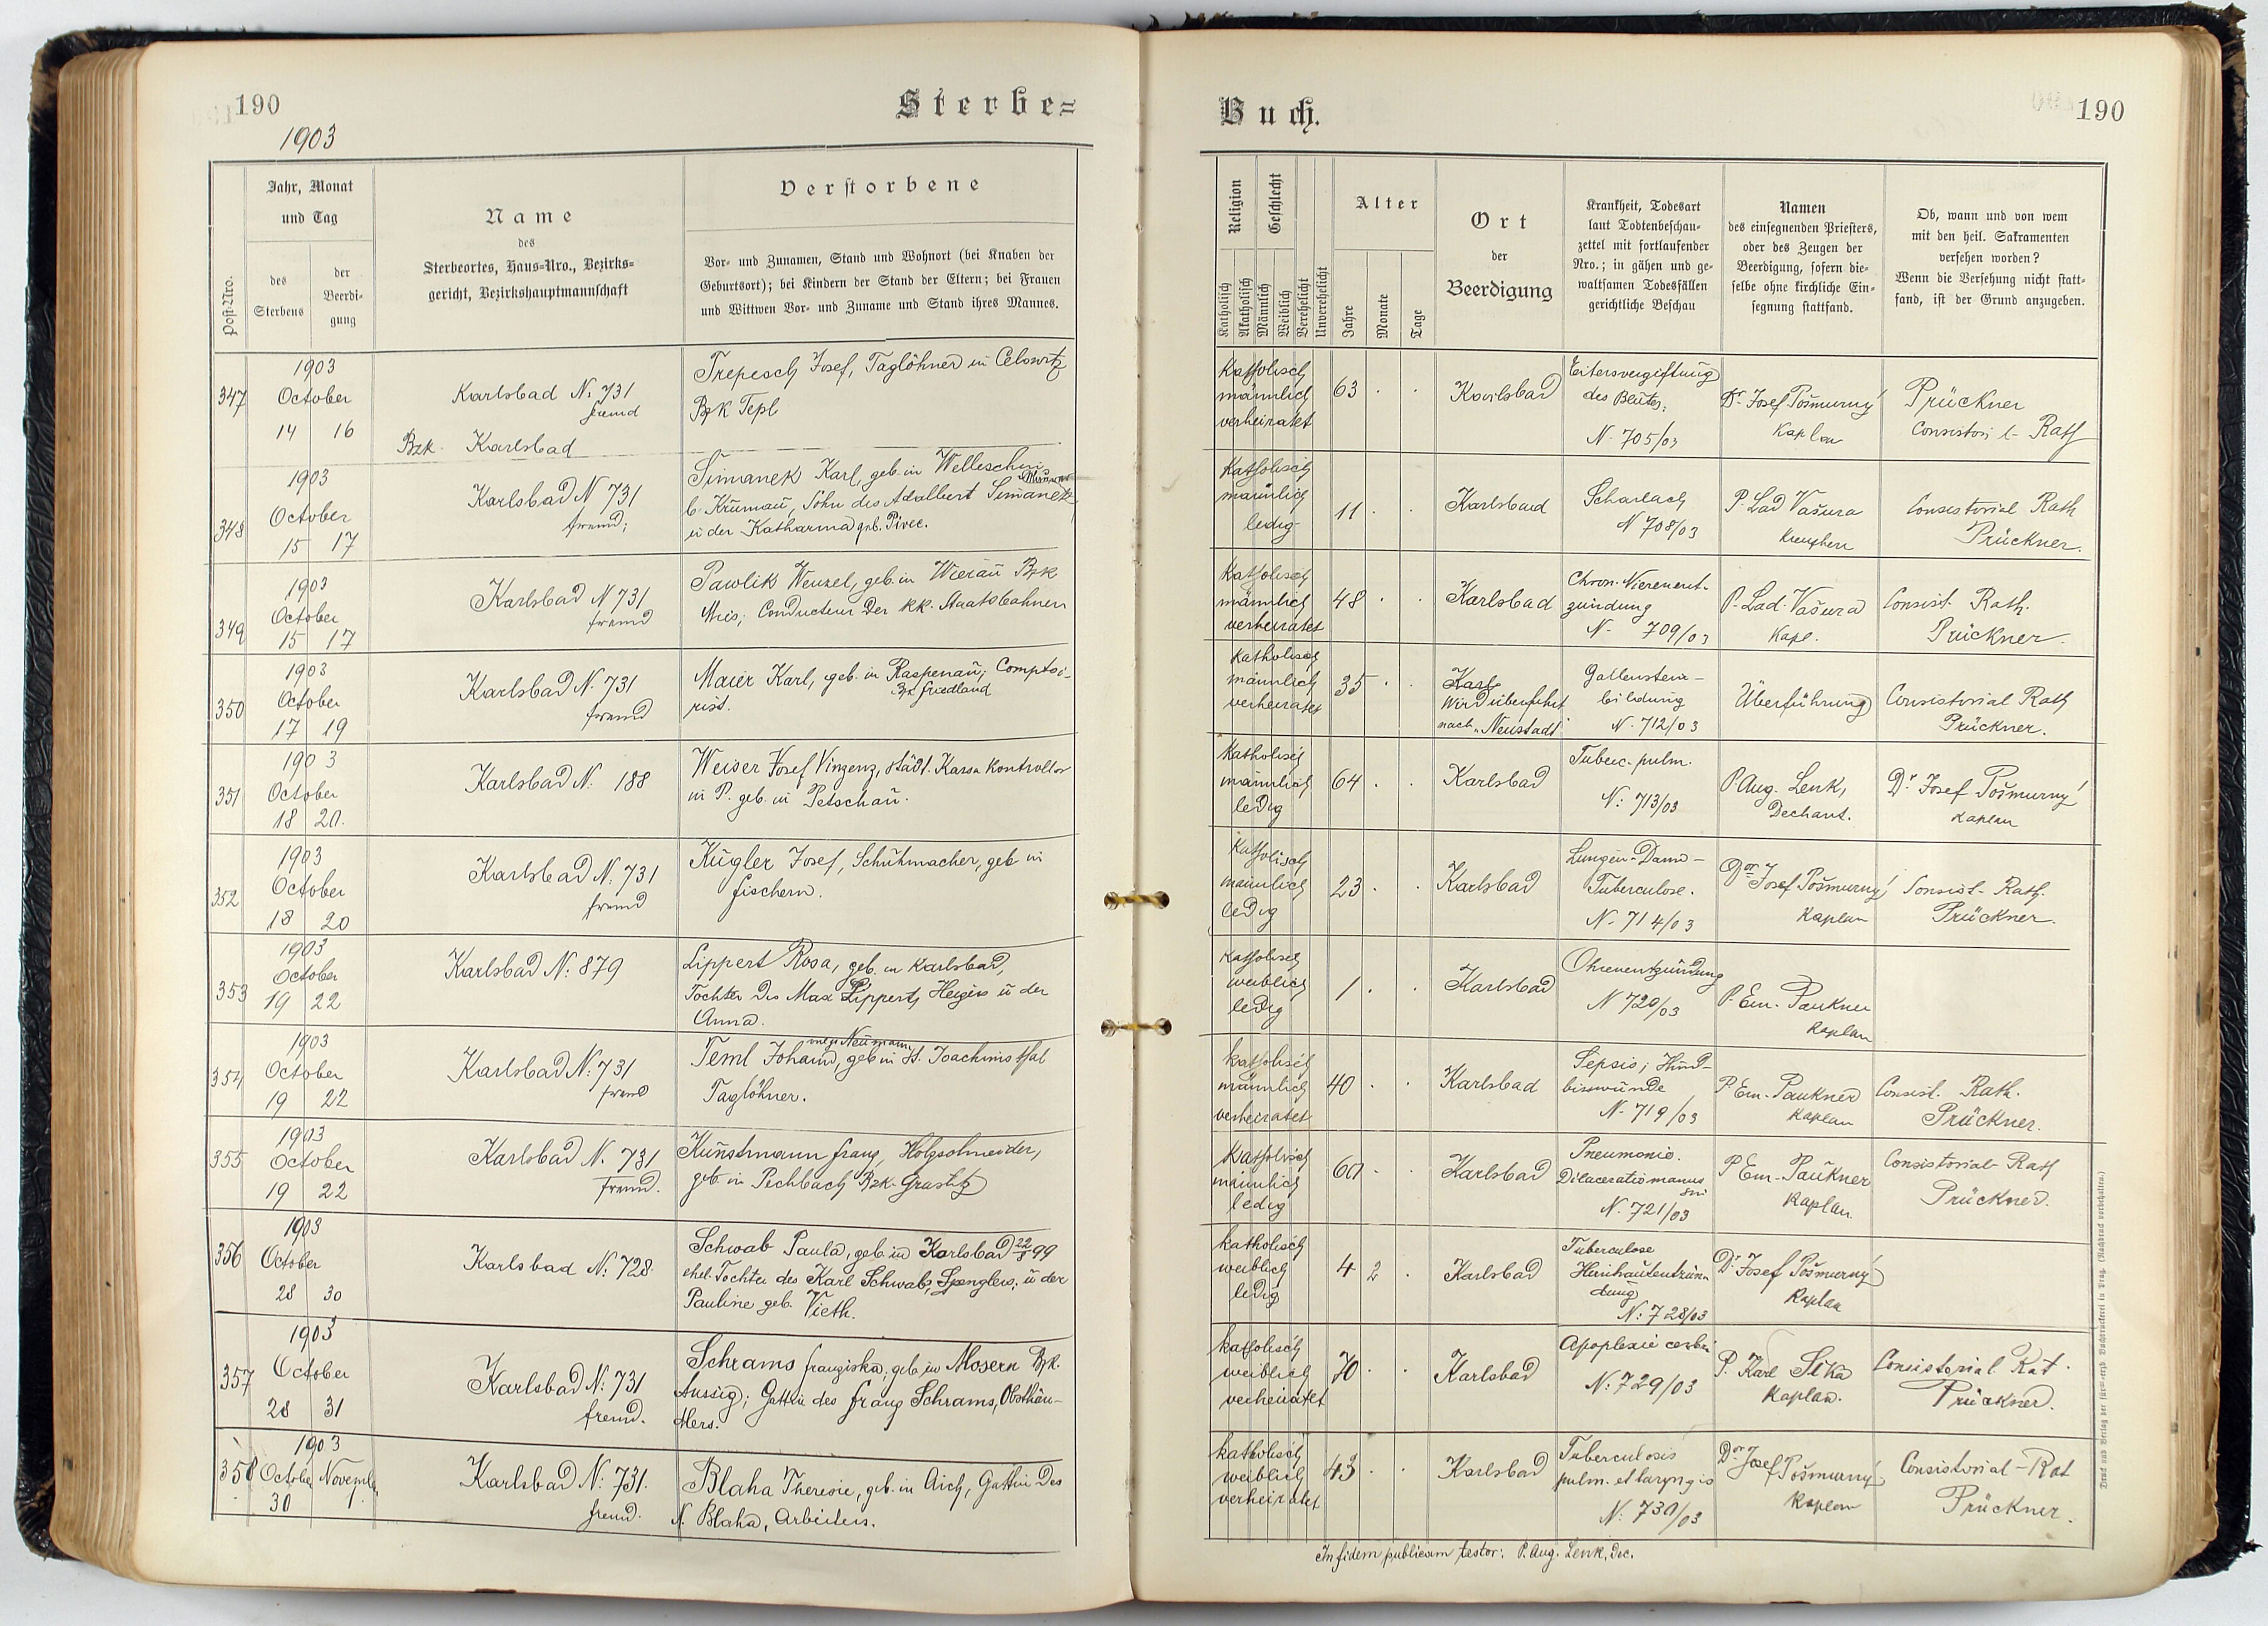 190
1903
Sterbe=
Post-Nro.
Jahr, Monat
und Tag
des
Sterbens
der
Beerdi-
gung
Name
des
Sterbeortes, Haus=Nro., Bezirks=
gericht, Bezirkshauptmannschaft
Verstorbene
Vor= und Zunamen, Stand und Wohnort (bei Knaben der
Geburtsort); bei Kindern der Stand der Eltern; bei Frauen
und Wittwen Vor= und Zuname und Stand ihres Mannes.
347
1903
October
14 16
Karlsbad N. 731
fremd
Bzk. Karlsbad
Trepesch Josef, Taglöhner in Celowitz
Bzk Tepl
348
1903
October
15 17
Karlsbad N 731
fremd;
Simanek Karl, geb. in Welleschin
b. Krumau, Sohn des Adalbert Simanek
u der Katharina geb. Pivec.
349
1903
October
15 17
Karlsbad N 731
fremd
Pawlik Wenzel, geb. in Wierau Bzk
Mies; Conducteur der kk. Staatsbahnen
350
1903
October
17 19
Karlsbad N. 731
fremd
Maier Karl, geb. in Raspenau, Comptoi-
Bzk Friedland
rist.
351
1903
October
18 20.
Karlsbad N. 188
Weiser Josef Vinzenz, städt. Kassa Kontrollor
in P. geb. in Petschau.
352
1903
October
18 20
Karlsbad N. 731
fremd
Kugler Josef, Schuhmacher, geb in
Fischern.
353
1903
October
19 22
Karlsbad N: 879
Lippert Rosa, geb. in Karlsbad,
Tochter des Max Lippert, Heizers u der
Anna.
354
1903
October
19 22
Karlsbad N: 731
fremd
vulgo Neumann
Teml Johann, geb in St. Joachimsthal
Taglöhner.
355
1903
October
19 22
Karlsbad N. 731
fremd.
Kunstmann Franz, Holzschneider,
geb. in Pechbach Bzk. Graslitz
356
1903
October
28 30
Karlsbad N: 728.
Schwab Paula, geb. in Karlsbad 22/8 99
ehel. Tochter des Karl Schwab, Spenglers, u der
Pauline geb. Vieth.
357
1903
October
28 31
Karlsbad N: 731
fremd.
Schrams Franziska, geb. in Mosern Bzk.
Aussig; Gattin des Franz Schrams, Obsthän-
dlers.
358
1903
October November
30 1.
Karlsbad N: 731.
fremd.
Blaha Theresie, geb. in Aich, Gattin des
N. Blaha, Arbeiters.
Buch.
190
Religion
Geschlecht
Katholisch
Akatholisch
Männlich
Weiblich
Verehelicht
Unverehelicht
Alter
Jahre
Monate
Tage
Ort
der
Beerdigung
Krankheit, Todesart
laut Todtenbeschau-
zettel mit fortlaufender
Nro.; in gähen und ge-
waltsamen Todesfällen
gerichtliche Beschau
Namen
des einsegnenden Priesters,
oder des Zeugen der
Beerdigung, sofern die-
selbe ohne kirchliche Ein-
segnung stattfand.
Ob, wann und von wem
mit den heil. Sakramenten
versehen worden?
Wenn die Versehung nicht statt-
fand, ist der Grund anzugeben.
Katholisch
männlich
verheiratet
63 . .
Karlsbad
Eitervergiftung
des Blutes;
N. 705/03
Dr. Josef Pošmurný
Kaplan
Prückner
Rath
Katholisch
männlich
ledig
11 . .
Karlsbad
Scharlach
N 708/03
P. Lad Vašura
Consistorial Rath
Prückner.
Katholisch
männlich
verheiratet
48 . .
Karlsbad
Chron. Nierenent-
zündung
N. 709/03
P. Lad. Vašura
Kapl.
Consist. Rath.
Prückner.
Katholisch
männlich
verheiratet
35 . .
Karls
Wird überführt
nach "Neustadt"
Gallenstein-
bildung
N. 712/03
Überführung
Consistorial Rath
Prückner.
Katholisch
männlich
ledig
64 . .
Karlsbad
Tuberc. pulm.
N: 713/03
P. Aug. Lenk,
Dechant.
Dr. Josef Pošmurný
Kaplan
Katholisch
männlich
ledig
23 . .
Karlsbad
Lungen-Darm-
Tuberculose.
N. 714/03
Dor Josef Pošmurný
Kaplan
Consist. Rath.
Prückner.
Katholisch
weiblich
ledig
1 . .
Karlsbad
Ohrenentzündung
N 720/03
P. Em. Paukner
Kaplan
Katholisch
männlich
verheiratet
40 . .
Karlsbad
Sepsis; Hund-
bisswunde
N. 719/03
P. Em. Paukner
Kaplan
Consist. Rath.
Prückner.
Katholisch
männlich
ledig
60 . .
Karlsbad
Pneumonie.
Dilaceratio manus
sin
N. 721/03
P. Em. Paukner
Kaplan.
Consistorial Rath
Prückner.
Katholisch
weiblich
ledig
4 2 .
Karlsbad
Tuberculose
Hirnhautentzün-
dung
N: 728/03
Dr. Josef Pošmurný
Kaplan
Katholisch
weiblich
verheiratet
70 . .
Karlsbad
Apoplexie cerebri
N: 729/03
P. Karl Sika
Kaplan.
Consistorial Rat
Prückner.
Katholisch
weiblich
verheiratet
43 . .
Karlsbad
Tuberculosis
pulm. et laryngis
N: 730/03
Dor Josef Pošmurný
Kaplan
Consistorial-Rat
Prückner.
In fidem publicam testor: P. Aug. Lenk, Dec.
Druck und Verlag der fürst-erzb. Buchdruckerei in Prag. (Nachdruck vorbehalten.)